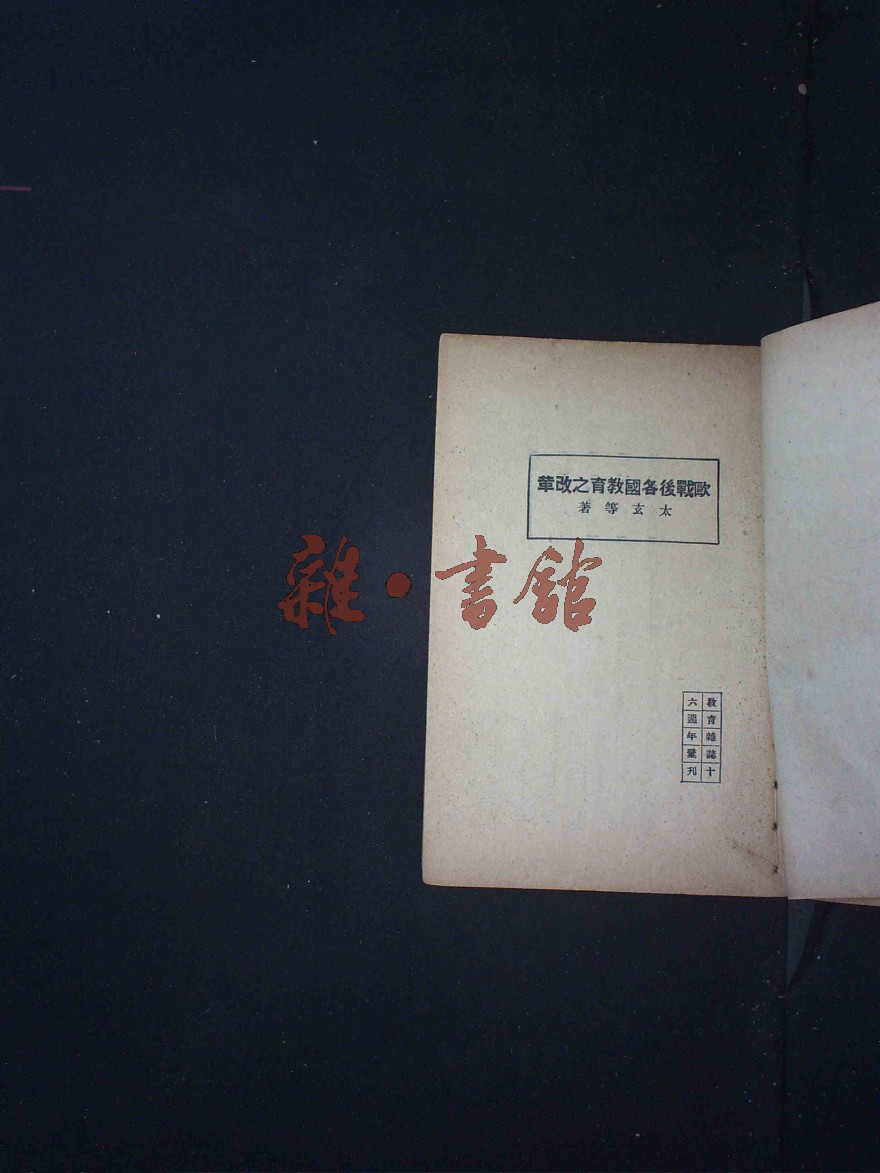 歐戰後各國教育之改革
太玄等著
雜·書館
教育雜誌十
六週年彙刊